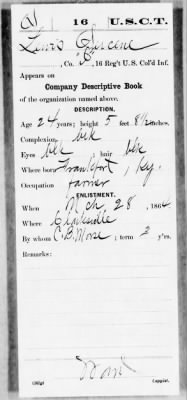 16 U.S.C.T.
Lewis
, Co. B, 16 Reg't U. S. Col'd Inf.
Appears on
Company Descriptive Book
of the organization named above.
DESCRIPTION.
Age 24 years; height 5 feet 8½ inches.
Complexion blk
Eyes blk hair blk
Where born Frankfort, Ky.
Occupation farmer
ENLISTMENT.
When Mch. 28, 1864
Where Clarksville
By whom C. B. Morse; term 3 y'rs.
Remarks:
(383g) Copyist.